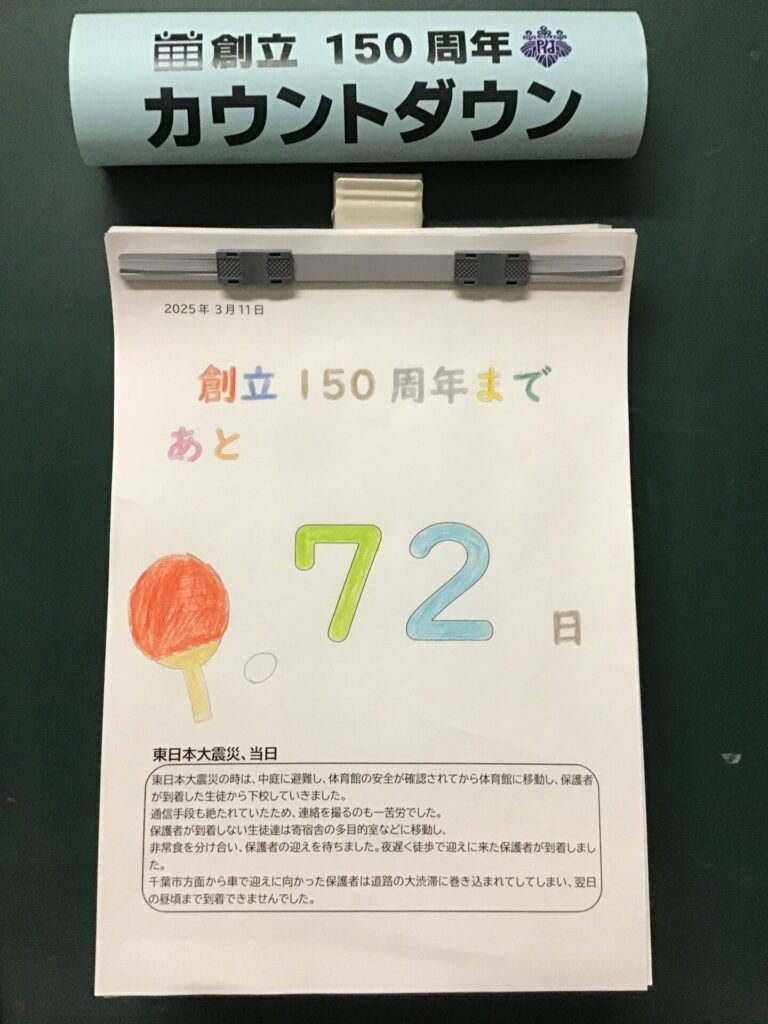 創立 150 周年
カウントダウン
2025年 3月11日
創立 150 周年まで
あと
72
日
東日本大震災、当日
東日本大震災の時は、中庭に避難し、体育館の安全が確認されてから体育館に移動し、保護者
が到着した生徒から下校していきました。
通信手段も絶たれていたため、連絡を撮るのも一苦労でした。
保護者が到着しない生徒達は寄宿舎の多目的室などに移動し、
非常食を分け合い、保護者の迎えを待ちました。夜遅く徒歩で迎えに来た保護者が到着しまし
た。
千葉市方面から車で迎えに向かった保護者は道路の大渋滞に巻き込まれてしてしまい、翌日
の昼頃まで到着できませんでした。